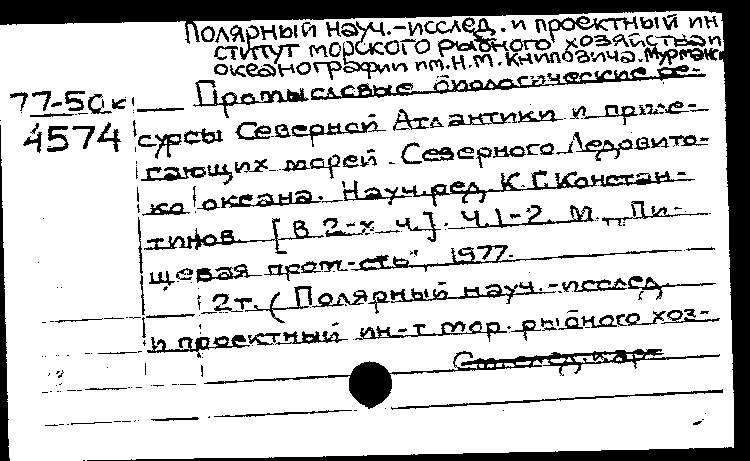 Полярный науч.-исслед. и проектный ин
ститут морского рыбного хозяйства и
океанографии им. Н.М. Книповича. Мурманск
77-50к Промысловые биологические ре-
4574 сурсы Северной Атлантики и приле-
гающих морей. Северного Ледовито-
го океана. Науч. ред. К.Г. Констан-
тинов. [В 2-х ч.]. Ч. 1-2. М., „Пи-
щевая пром-сть", 1977.
2т. (Полярный науч.-исслед
и проектный ин-т мор. рыбного хоз-
См. след. карт